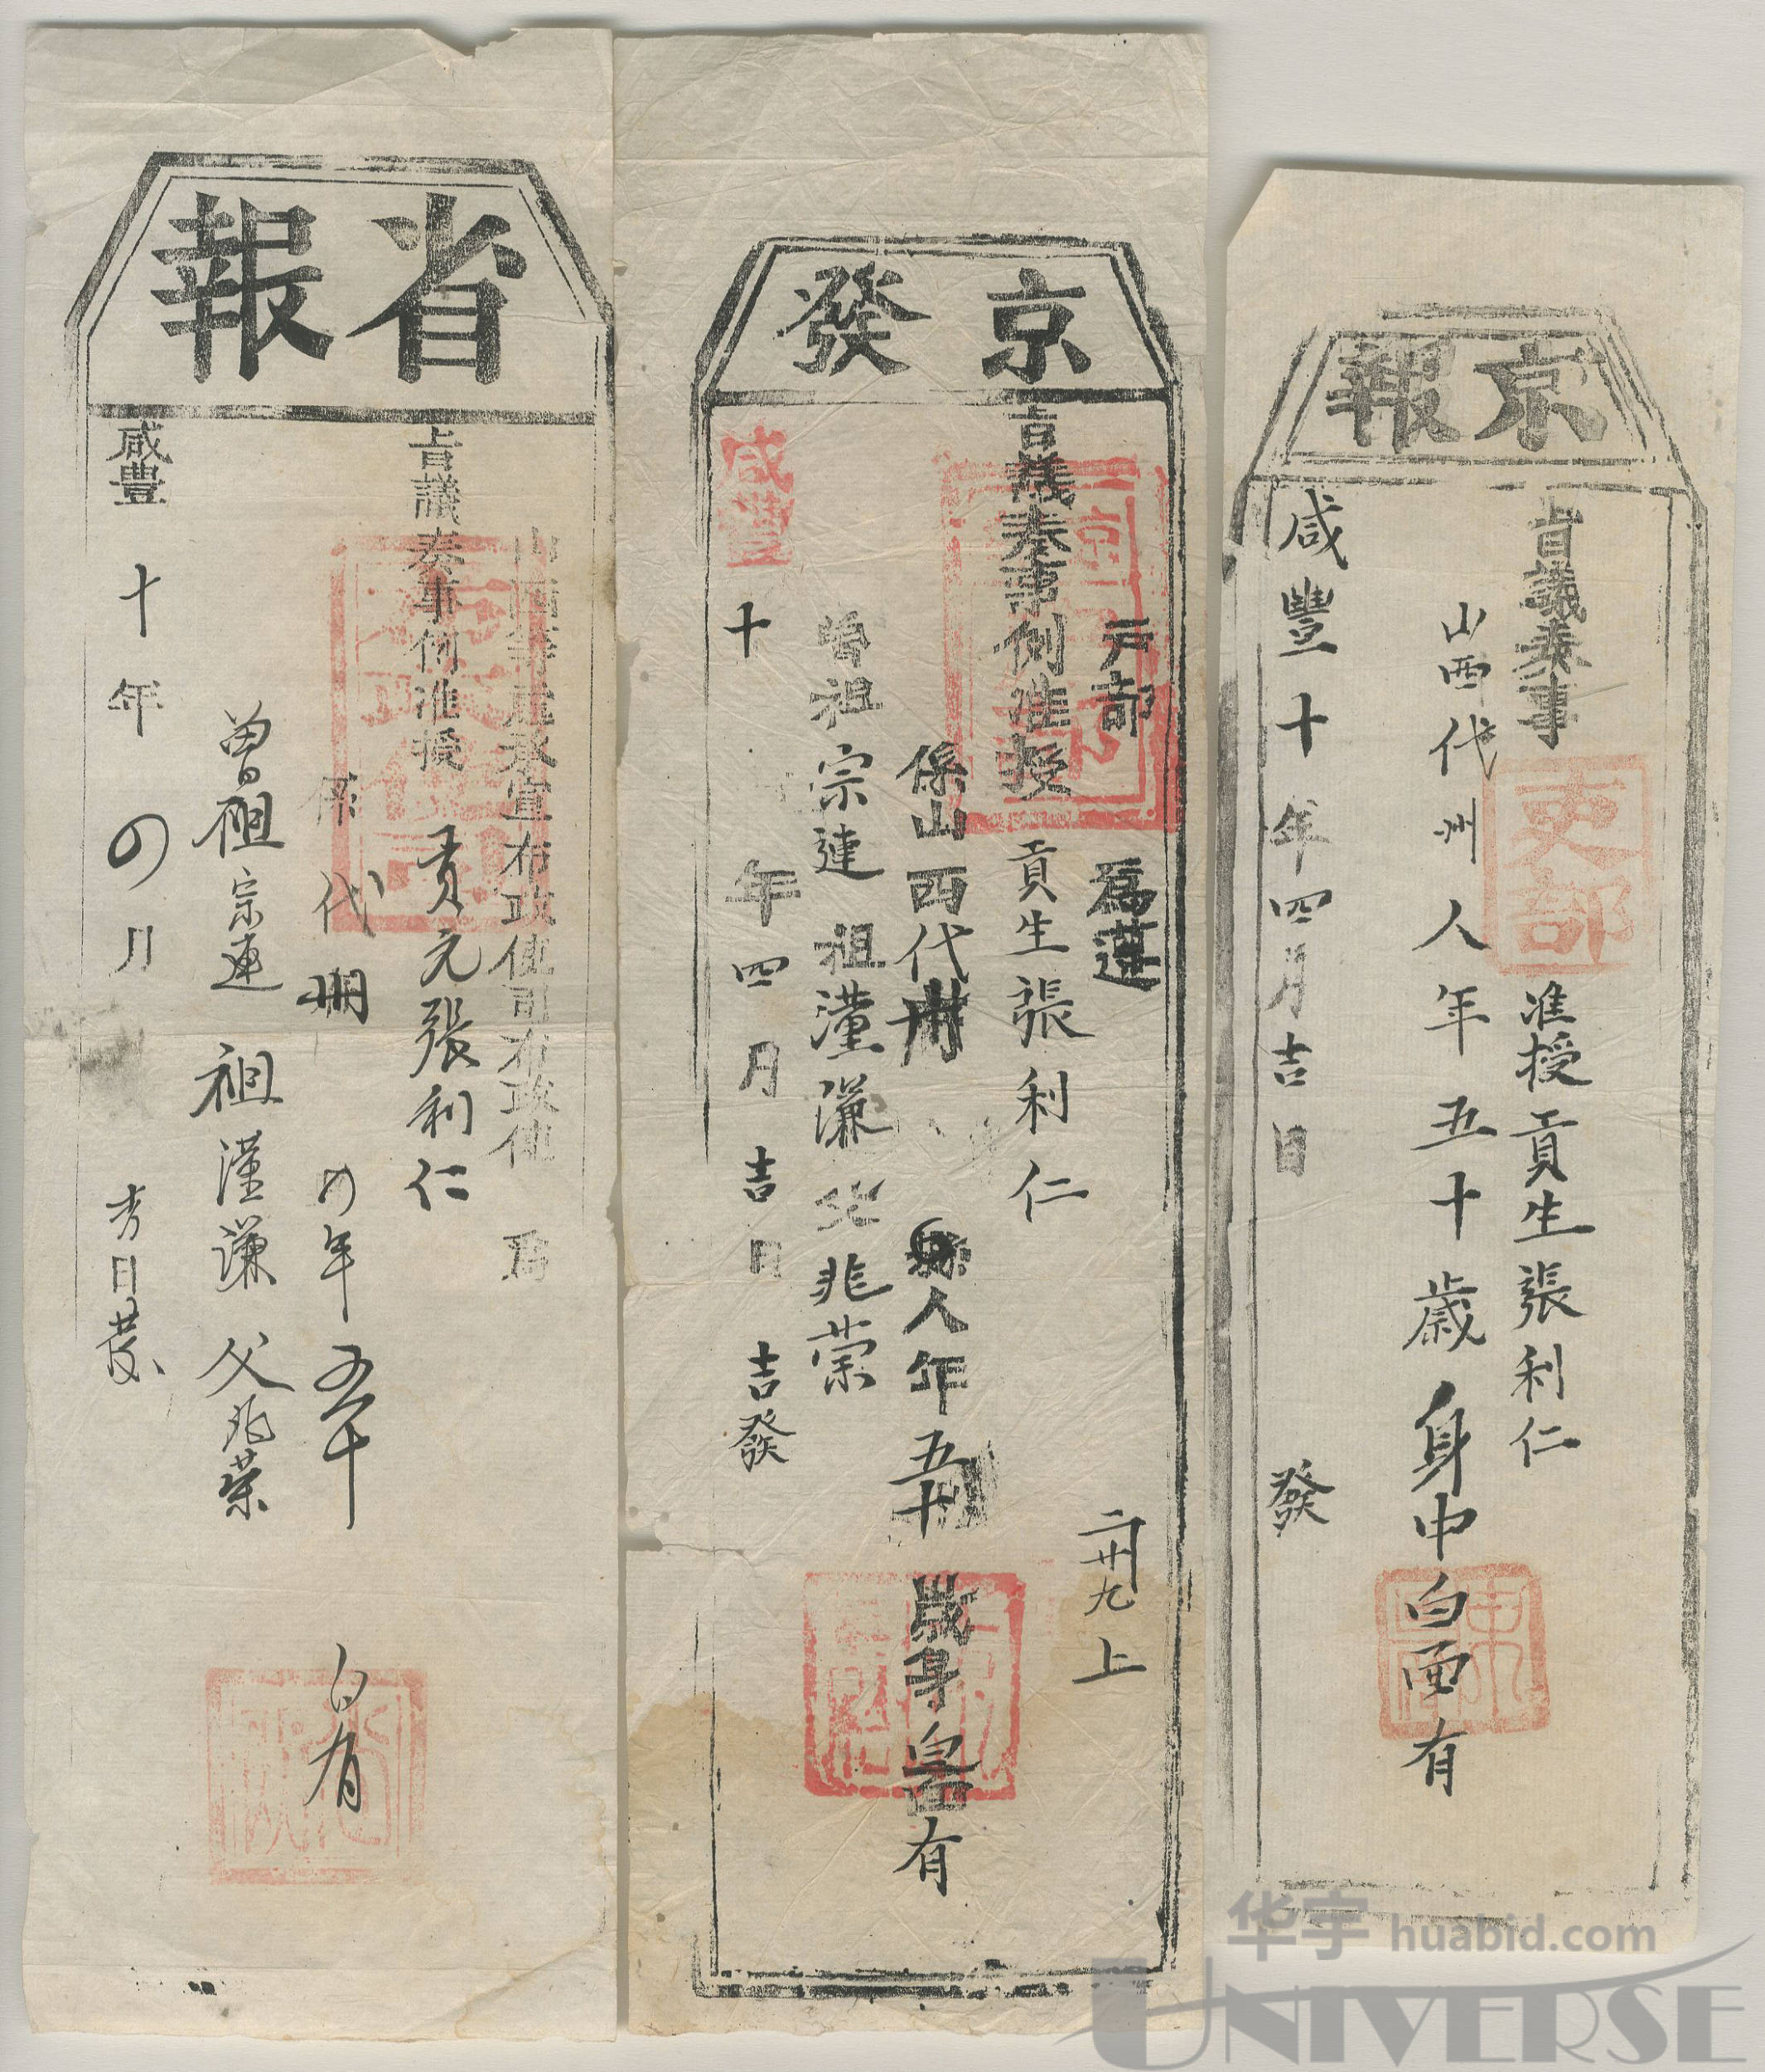 京報
旨議奏事
吏部
准授貢生張利仁
山西代州人年五十歲身中白面有
咸豐十年四月吉日 發
京發
戶部 為遵
二卅九上
旨議奏事例准授貢生張利仁
係山西代州 縣人年五十歲身 面有
曾祖宗連 祖漌濂 父兆榮
咸豐十年四月吉日 吉發
省報
山西等處承宣布政使司布政使 為
旨議奏事例准授 貢元張利仁
係代州 年五十 白有
曾祖宗連 祖漌謙 父兆荣
咸豐十年 月 日發
华宇 huabid.com
UNIVERSE